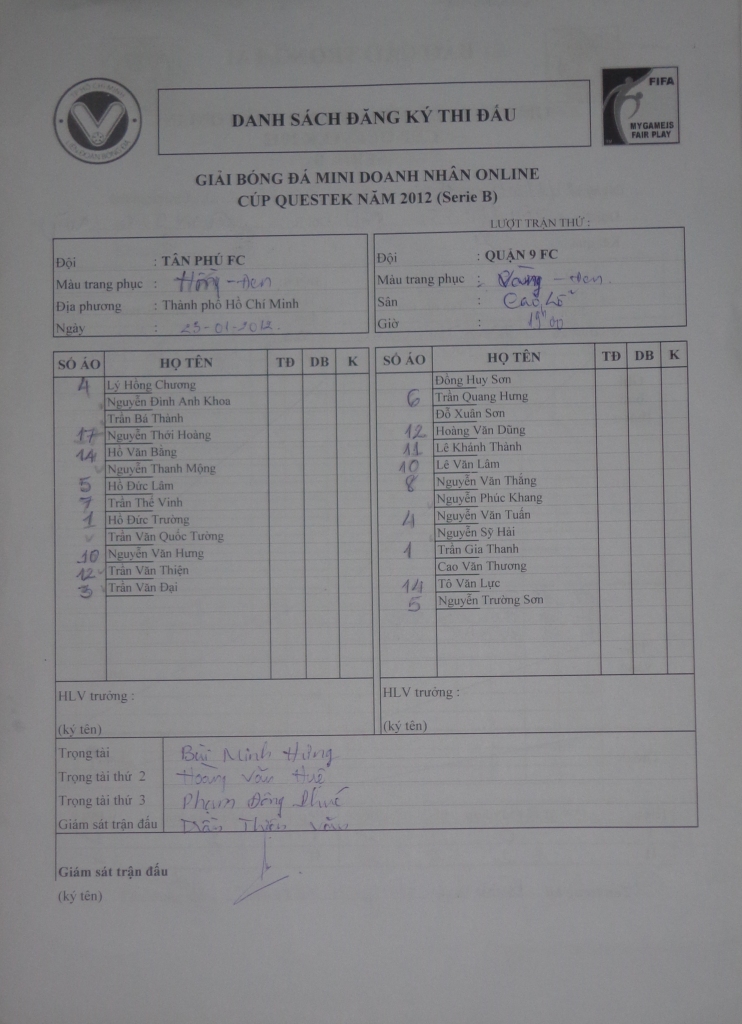 FIFA
MY GAME IS
FAIR PLAY
DANH SÁCH ĐĂNG KÝ THI ĐẤU
GIẢI BÓNG ĐÁ MINI DOANH NHÂN ONLINE
CÚP QUESTEK NĂM 2012 (Serie B)
LƯỢT TRẬN THỨ :
Đội : TÂN PHÚ FC
Màu trang phục : Hồng - Đen
Địa phương : Thành phố Hồ Chí Minh
Ngày : 23-01-2012.
Đội : QUẬN 9 FC
Màu trang phục : Vàng - Đen.
Sân : Cao Lỗ
Giờ : 19h00
SỐ ÁO HỌ TÊN TĐ DB K
4 Lý Hồng Chương
Nguyễn Đình Anh Khoa
Trần Bá Thành
17 Nguyễn Thới Hoàng
14 Hồ Văn Bằng
Nguyễn Thanh Mộng
5 Hồ Đức Lâm
7 Trần Thế Vinh
1 Hồ Đức Trường
Trần Văn Quốc Tường
10 Nguyễn Văn Hưng
12 Trần Văn Thiện
3 Trần Văn Đại
HLV trưởng :
(ký tên)
SỐ ÁO HỌ TÊN TĐ DB K
Đồng Huy Sơn
6 Trần Quang Hưng
Đỗ Xuân Sơn
12 Hoàng Văn Dũng
11 Lê Khánh Thành
10 Lê Văn Lâm
8 Nguyễn Văn Thắng
Nguyễn Phúc Khang
4 Nguyễn Văn Tuấn
Nguyễn Sỹ Hải
1 Trần Gia Thanh
Cao Văn Thương
14 Tô Văn Lực
5 Nguyễn Trường Sơn
HLV trưởng :
(ký tên)
Trọng tài Bùi Minh Hùng
Trọng tài thứ 2 Hoàng Văn Huế
Trọng tài thứ 3 Phạm Đông
Giám sát trận đấu Trần Thiện Văn
Giám sát trận đấu
(ký tên)